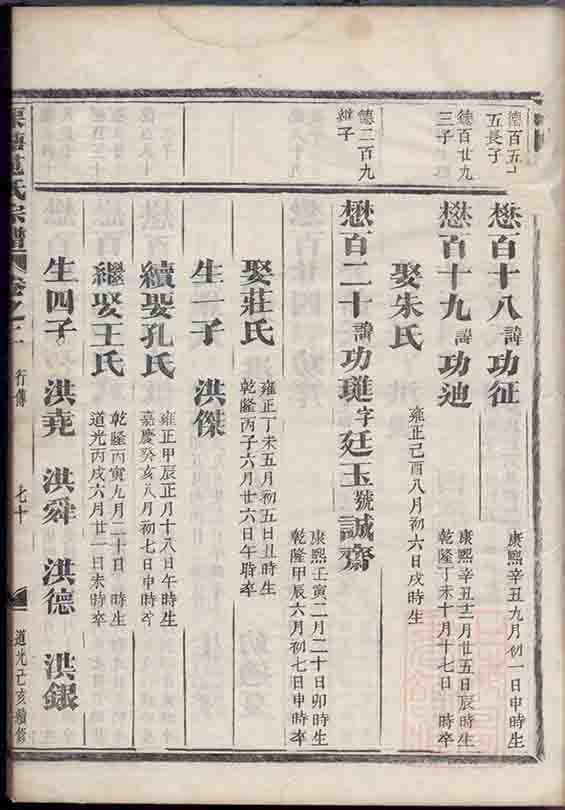 德百五
五長子
懋百十八諱功征
康熙辛丑九月初一日申時生
德百廿九
三子
懋百十九諱功迪
康熙辛丑十二月廿五日辰時生
乾隆丁未十月十七日 時卒
娶朱氏
雍正己酉八月初六日戌時生
德二百九
子
懋百二十諱功璡字廷玉號誠齋
康熙壬寅二月二十日卯時生
乾隆甲辰六月初七日申時卒
娶莊氏
雍正丁未五月初五日丑時生
乾隆丙子六月廿六日午時卒
生一子 洪傑
續娶孔氏
雍正甲辰正月十八日午時生
嘉慶癸亥八月初七日申時卒
繼娶王氏
乾隆丙寅九月二十日 時生
道光丙戌六月廿一日未時卒
生四子 洪堯 洪舜 洪德 洪銀
氏宗譜 卷之二 行傳 七十 道光己亥續修